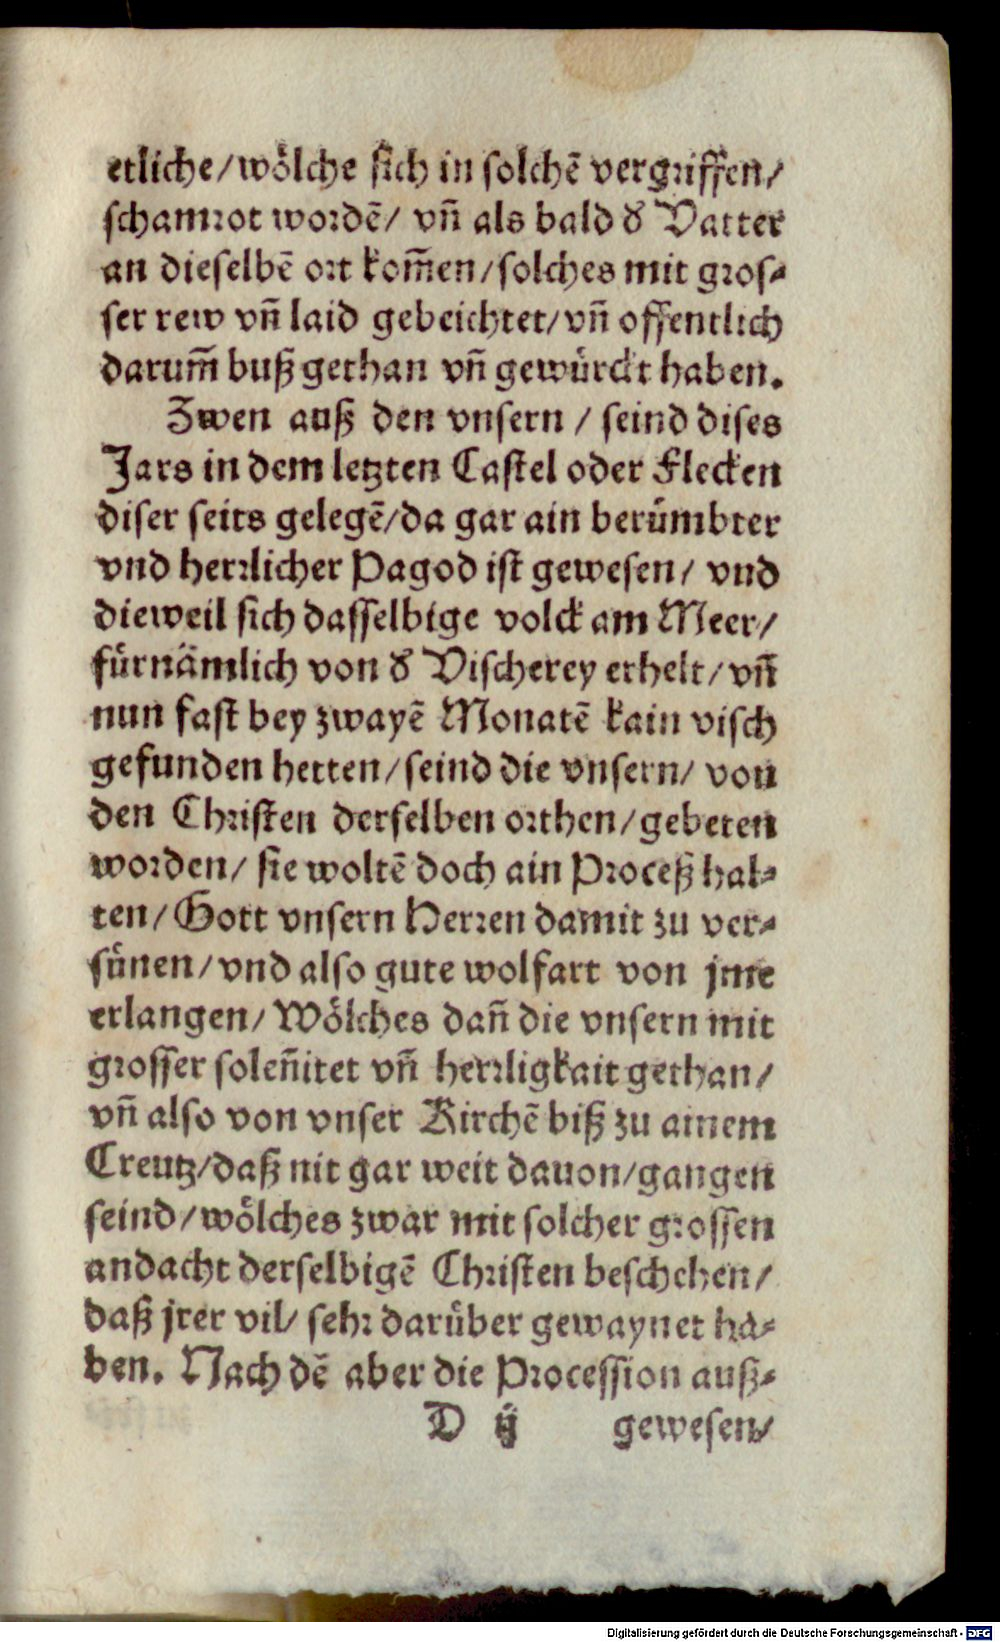 etliche/wölche sich in solchē vergriffen/
schamrot wordē/ vn̄ als bald d̕ Vatter
an dieselbē ort kom̄en/solches mit gros⸗
ser rew vn̄ laid gebeichtet/vn̄ offentlich
darum̄ buß gethan vn̄ gewürckt haben.
Zwen auß den vnsern / seind dises
Jars in dem letzten Castel oder Flecken
diser seits gelegē/da gar ain berümbter
vnd herrlicher Pagod ist gewesen/ vnd
dieweil sich dasselbige volck am Meer/
fürnämlich von d̕ Vischerey erhelt/ vn̄
nun fast bey zwayē Monatē kain visch
gefunden hetten/seind die vnsern/ von
den Christen derselben orthen/gebeten
worden/ sie woltē doch ain Proceß hal⸗
ten/Gott vnsern Herren damit zu ver⸗
sünen/vnd also gute wolfart von jme
erlangen/ Wölches dan̄ die vnsern mit
grosser solen̄itet vn̄ herrligkait gethan/
vn̄ also von vnser Kirchē biß zu ainem
Creutz/daß nit gar weit dauon/gangen
seind/wölches zwar mit solcher grossen
andacht derselbigē Christen beschehen/
daß jrer vil/ sehr darüber gewaynet ha⸗
ben. Nach dē aber die Procession auß⸗
D ij gewesen/
Digitalisierung gefördert durch die Deutsche Forschungsgemeinschaft - DFG